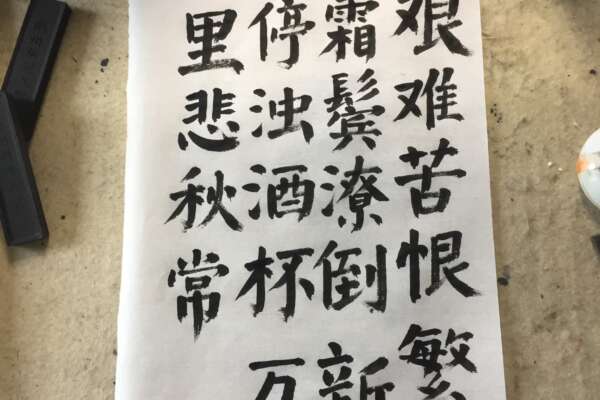 艰难苦恨繁
霜鬓潦倒新
停浊酒杯万
里悲秋常